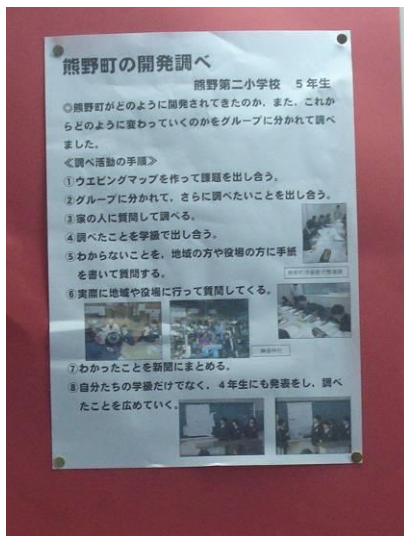 熊野町の開発調べ
熊野第二小学校　５年生
◎熊野町がどのように開発されてきたのか、また、これか
らどのように変わっていくのかをグループに分かれて調べ
ました。
≪調べ活動の手順≫
①ウエビングマップを作って課題を出し合う。
②グループに分かれて、さらに調べたいことを出し合う。
③家の人に質問して調べる。
④調べたことを学級で出し合う。
⑤わからないことを、地域の方や役場の方に手紙
を書いて質問する。
⑥実際に地域や役場に行って質問してくる。
⑦わかったことを新聞にまとめる。
⑧自分たちの学級だけでなく、４年生にも発表をし、調べ
たことを広めていく。